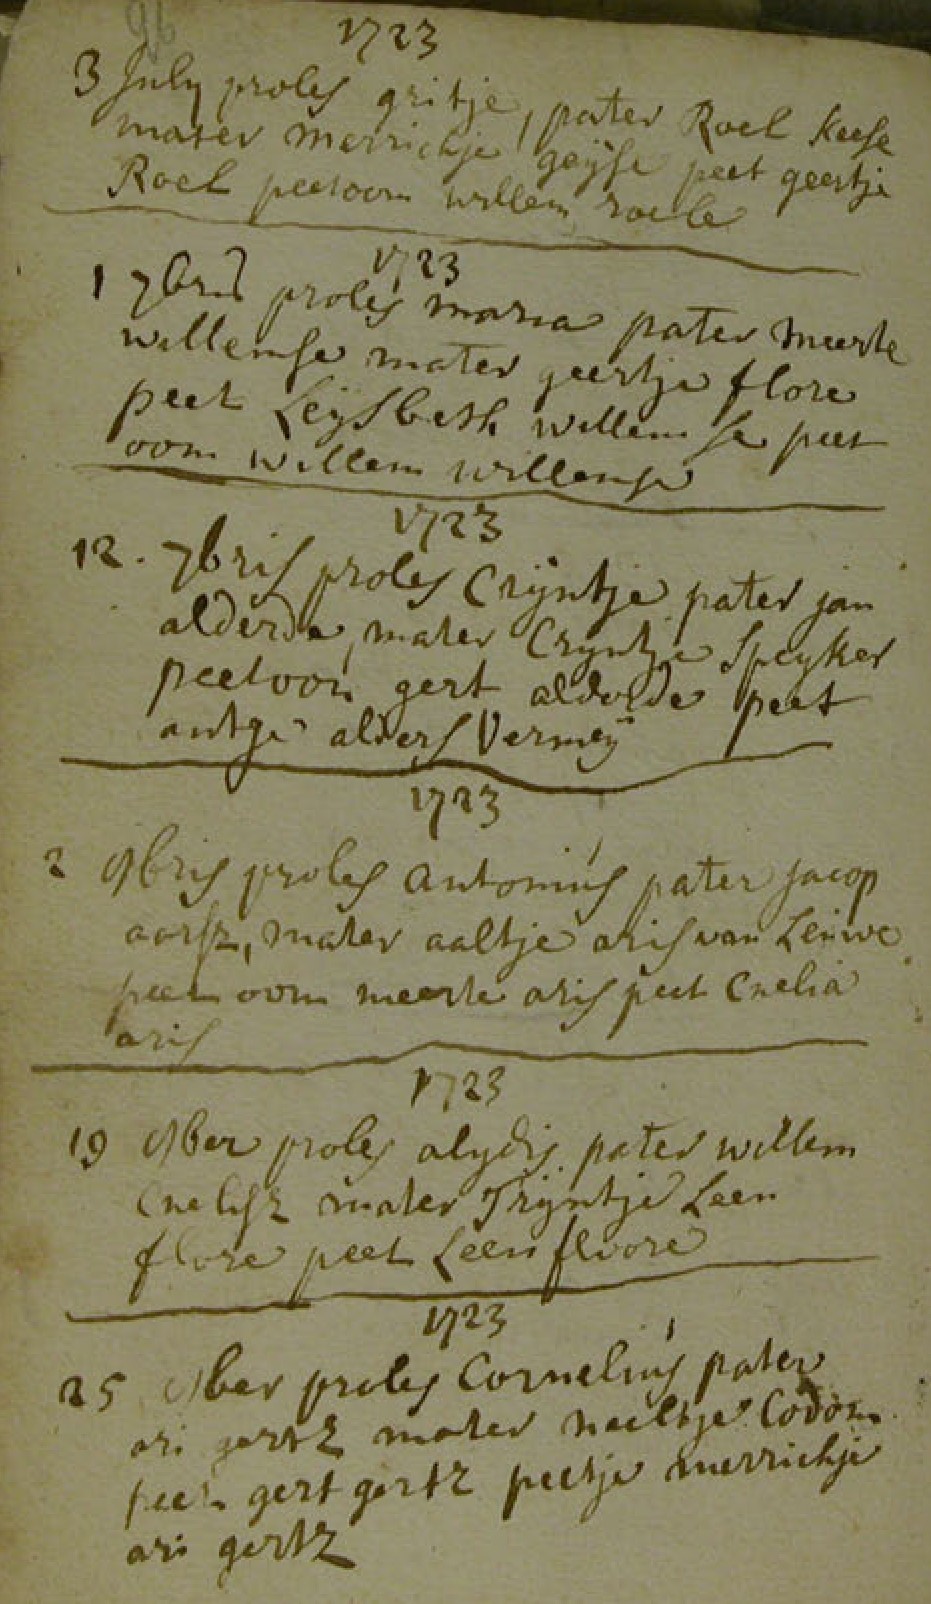 96
1723
3 July proles gritje, pater Roel keese
mater merrichje geijse peet geertje
Roel peetoom willem roele
1723
1 7bris proles maria pater meerte
willemse mater geertje flore
peet Leijsbeth willemse peet
oom willem willemse
1723
12. 7bris proles Crijntje pater jan
alderde, mater Cryntje Speyker
peetoom gert alderde peet
antge alders Vermeij
1723
2 9bris proles antonius pater jacop
aartz, mater aaltje aris van Leuwe
peet oom meerte aris peet Cnelia
aris
1723
19 9ber proles alydis pater willem
Cnelisz mater Trijntje Leen
flore peet Leen floore
1723
25 9ber proles Cornelius pater
ari gertz mater neeltje
peet gert gertz peetje merrichje
ari gertz